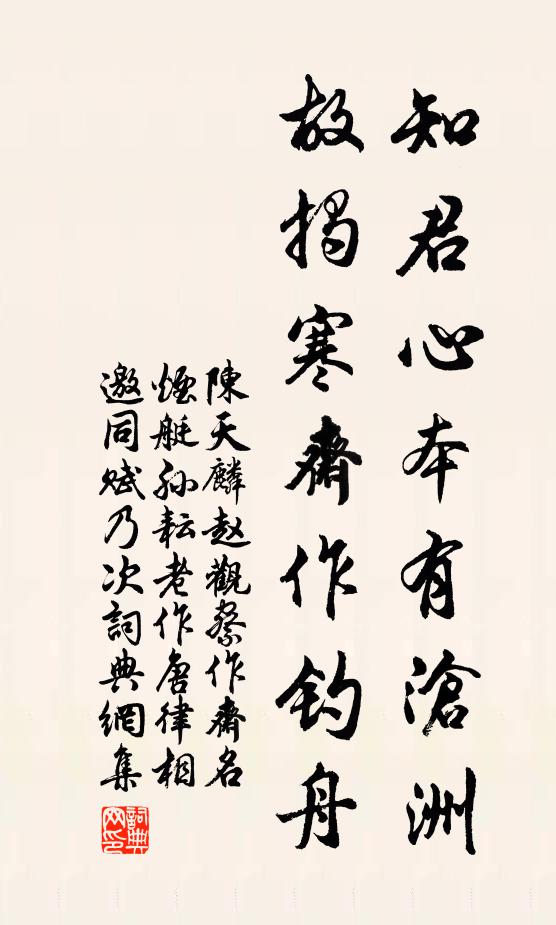 知君心本有滄洲
故揭寒齋作钓舟
陳天麟赵觀察作齋名
煙艇孙耘老作唐律相
邀同赋乃次詞典網集
詞典網印